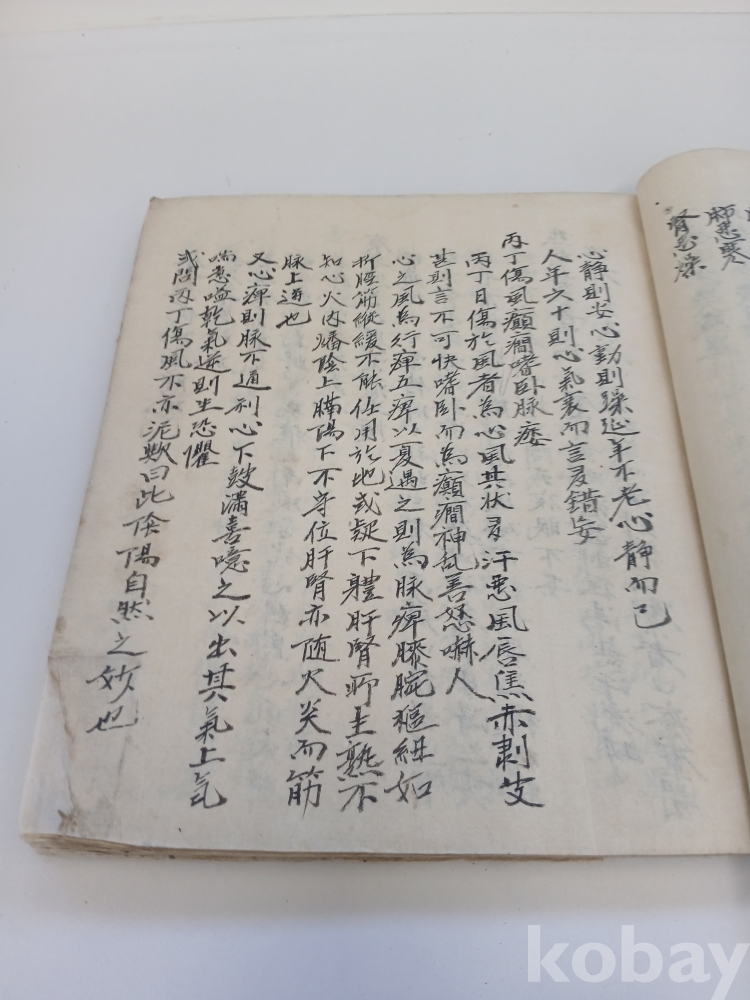 肺惡寒
腎惡燥
心靜則安心動則躁延年不老心靜而已
人年六十則心氣衰而言多錯妄
丙丁傷風癲癇嗜卧脉痿
丙丁日傷於風者為心風其状多汗惡風唇焦赤剥皮
甚則言不可快嗜卧而為癲癇神乱善怒嚇人
心之風為行痺五痺以夏遇之則為脉痺膝腕樞紐如
折脛筋縱緩不能任用於地或疑下體肝腎所主熟不
知心火内燔陰上膈陽下不守位肝腎亦随火炎而筋
脉上逆也
又心痺則脉不通利心下鼓滿喜噫之以出其氣上气
喘息嗌乾氣逆則生恐懼
或問丙丁傷風不亦泥歟曰此陰陽自然之妙也
kobay